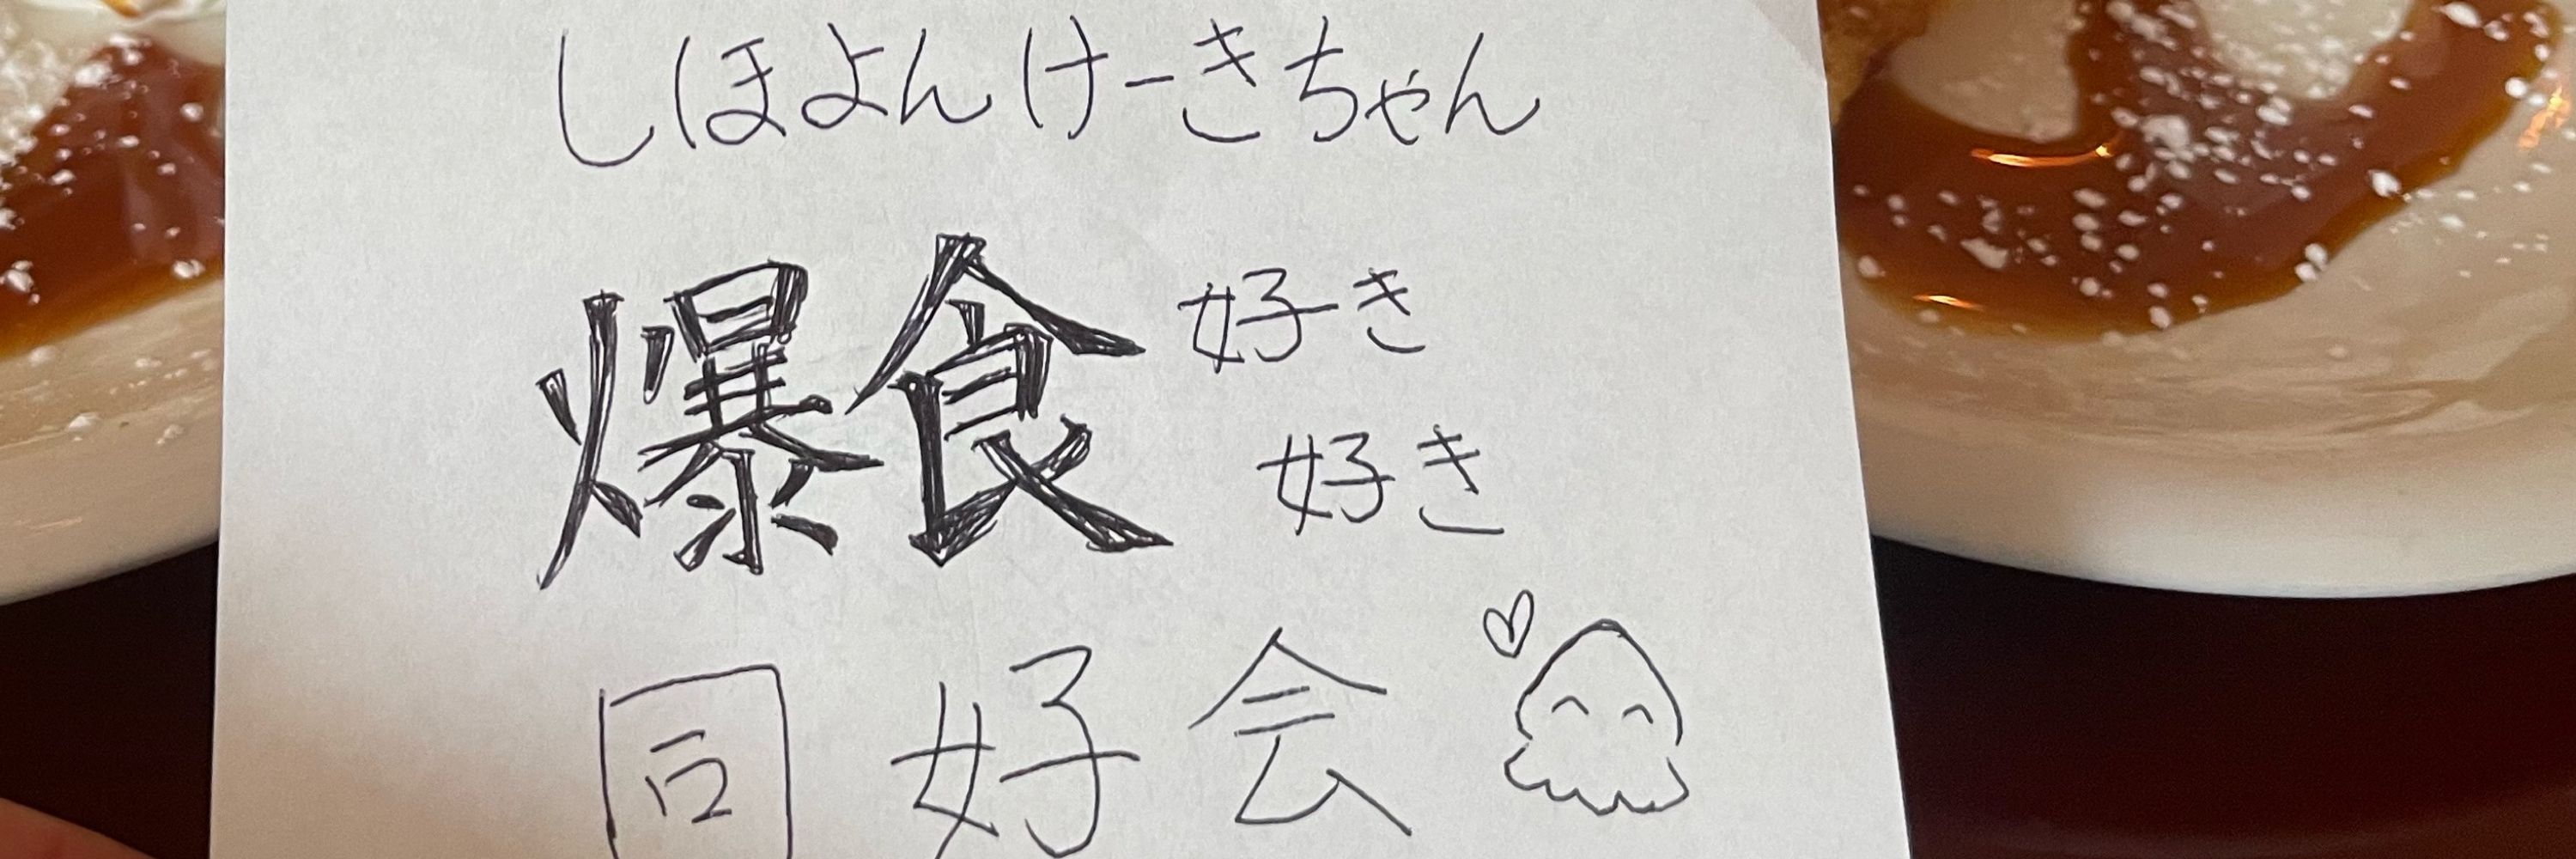 しほよんけーきちゃん
爆食好き
好き
同好会